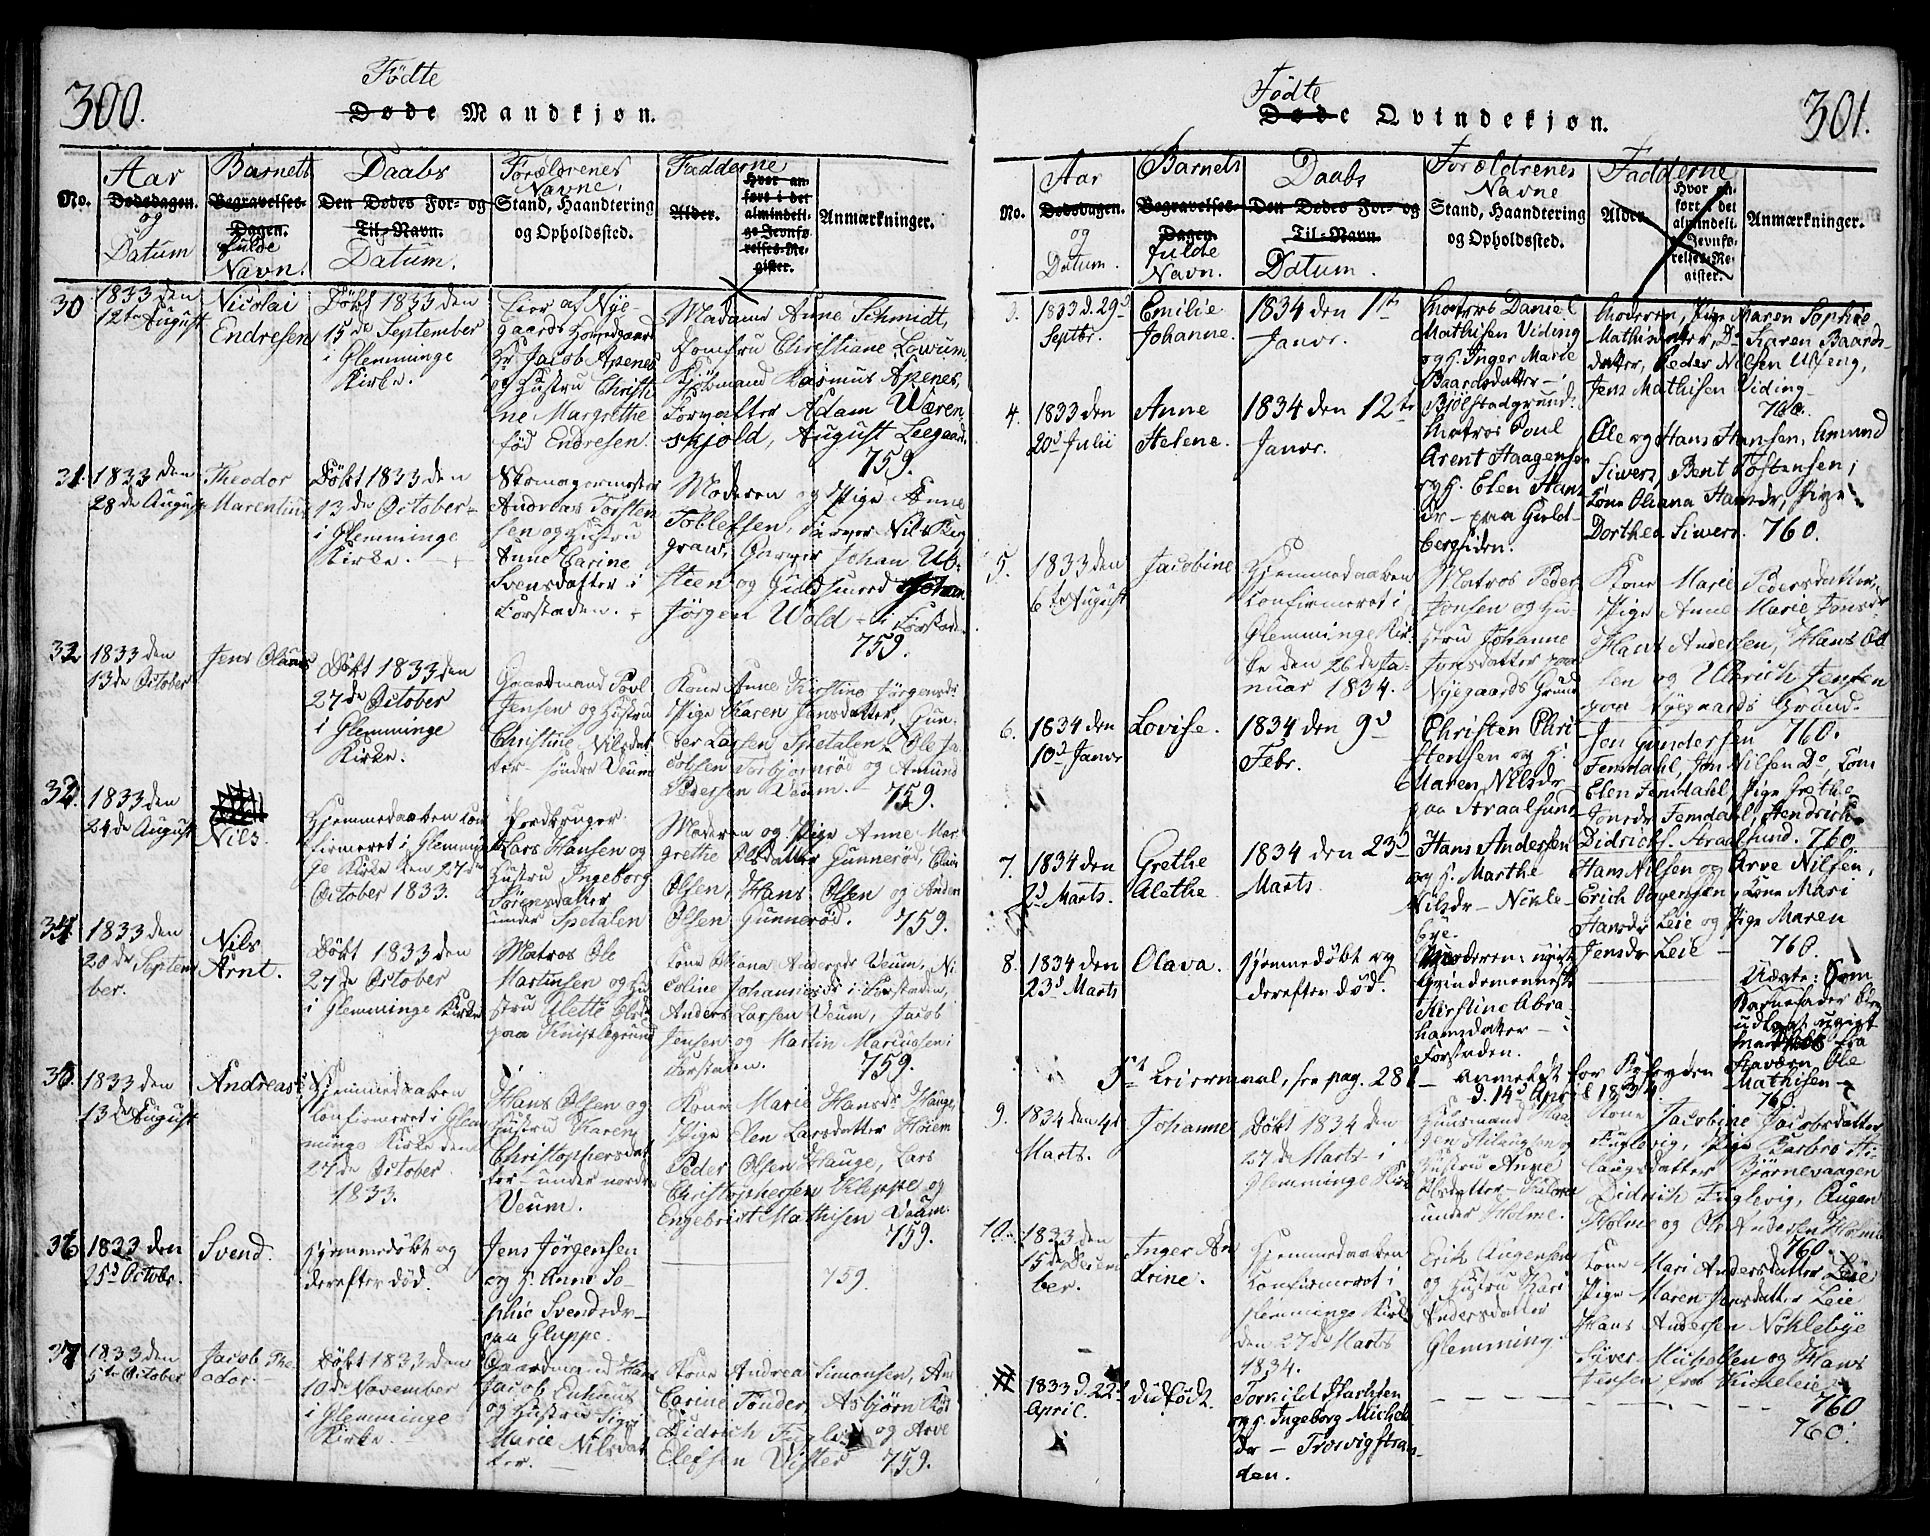 300.
Födte
Døde Mandkjøn.
No.
Aar
Dødsdagen.
og
Datum
Barnets
Begravelses-
Dagen.
fulde
Navn.
Daabs
Den Dødes For- og
Til-Navn.
Datum.
Forældrenes
Navne,
Stand, Haandtering
og Opholdssted.
Fadderne
Alder.
Hvor an-
ført i det
almindeli-
ge Jevnfø-
relses-Re-
gister.
Anmærkninger.
30
1833 den
12te August
Nicolai
Endresen
Döbt 1833 den
15de September
i Glemminge
Kirke.
Eier af Nye-
gaards Hovedgaard
Hr Jacob Apenes
og Hustru Christi-
ne Margrethe
född Endresen.
Madame Anne Schmidt,
Jomfru Christiane Lowum
Kjöbmand Rasmus Apenes,
Forvalter Adam Wæren-
skjold, August Leegaard
759.
31.
1833 den
28de August
Theodor
Marentius
Döbt 1833 den
13de October
i Glemminge
Kirke.
Skomagermester
Andreas Torsten-
sen og Hustru
Anne Carine
Svensdatter i
Forstaden.
Moderen og Pige Anne
Toblefsen, Farver Nils Big
Garver Johan Ub-
steen og Guldsmed
Jörgen Wold i Forstaden
759.
32
1833 den
13de October
Jens Olaus
Döbt 1833 den
27de October
i Glemminge
Kirke.
Gaardmand Povl
Jensen og Hustru
Christine Nilsdat-
ter söndre Veum
Kone Anne Kirstine Jörgensdr
Pige Karen Jensdatter, Gun-
der Larsen Spetalen, Ole Ja-
cobsen Torbjörnröd og Amund
Pedersen Veum.
759.
33.
1833 den
24de August
Nils.
Hjemmedaaben con-
firmeret i Glemmin-
ge Kirke den 27de
October 1833.
Jordbruger
Lars Hansen og
Hustru Ingeborg
Sörensdatter
under Spetalen
Moderen og Pige Anne Mar-
grethe Olsdatter Gunneröd,
Olsen, Hans Olsen og Anders
Olsen Gunneröd.
759.
34
1833 den
20de Septem-
ber.
Nils
Arnt.
Döbt 1833 den
27de October
i Glemminge Kirke
Matros Ole
Martinsen og Hu-
stru Olette Olsdr
paa Kniplegrund
Kone Andersdr Veum, Ni-
coline Johannesdr i Forstaden,
Anders Larsen Veum, Jacob
Jensen og Martin Mariussen i
Forstaden.
759.
35.
1833 den
13de August
Andreas
Hjemmedaaben
confirmeret i Glem-
minge Kirke den
27de October
1833.
Hans Olsen og
Hustru Karen
Christophersdat-
ter under nordre
Veum.
Kone Marie Hansdr Hauge,
Pige Elen Larsdatter Holem
Peder Olsen Hauge, Lars
Christophersen Kleppe og
Engebrist Mathisen Veum.
759.
36
1833 den
25d Octobr.
Svend.
Hjemmedöbt og
derefter död.
Jens Jörgensen
og H. Anne So-
phie Svendsdr
paa Gluppe.
759
37
1833 den
5te October
Jacob The-
odor.
Döbt 1833 den
10de November
i Glemminge
Kirke
Gaardmand Hans
Jacob
og Hustru Siger
Marie Nilsdat-
ter.
Kone Andrea Simonsen,
Carine Tönder, Asbjörn
Didrich og Arve
Olefsen Vister
759.
301.
Födte
Døde Qvindekjøn.
No.
Aar
Dødsdagen.
og
Datum.
Barnets
Begravelses-
Dagen.
fulde
Navn.
Daabs
Den Dødes For- og
Til-Navn.
Datum.
Forældrenes
Navne
Stand, Haandtering
og Opholdssted.
Fadderne
Alder.
Hvor an-
ført i det
almindeli-
ge Jevnfø-
relses-Re-
gister.
Anmærkninger.
3.
1833 d. 29d
Septbr.
Emilie
Johanne.
1834 den 1ste
Janvr.
Matros Daniel
Mathisen Viding
og H. Inger Marie
Baardsdatter
Bjölstadgrund.
Moderen, Pige Maren Sophie
Mathisdatter, Do Karen Baards-
datter, Peder Nilsen Ufseng,
Jens Mathisen Viding
760.
4.
1833 den
20d Julii
Anne
Helene.
1834 den 12te
Janvr.
Matros Poul
Arent Haagensen
og H. Elen Hans-
dr paa Guld-
bergsiden.
Ole og Hans Hansen, Amund
Siwers, Bent Tostensen,
Kone Oliana Hansdr, Pige
Dorthea Siwers.
760.
5.
1833 den
6te August
Jacobine
Hjemmedaaben
confirmeret i
Glemminge Kir-
ke den 26de Ja-
nuar 1834.
Matros Peder
Jonsen og Hu-
stru Johanne
Jonsdatter paa
Nyegaards Grund
Kone Marie Pedersdatter,
Pige Anne Marie Jonsdr
Hans Andersen, Hans Ol-
sen og Ulbrich Jensen
paa Nyegaards Grund.
760.
6.
1834 den
10d Janvr
Lovise.
1834 den 9d
Febr.
Christen Chri-
stensen og H.
Maren Nilsdr
paa Straalsund
Jon Gundersen
Femdahl, Jon Nilsen Do Kone
Elen Femdahl, Pige Grethe
Jonsdr Femdahl, Hendrich
Didrichs. Straalsund.
760.
7.
1834 den
2d Marts.
Grethe
Alethe.
1834 den 23d
Marts.
Hans Andersen
og H. Marthe
Nilsdr Nökle-
bye.
Hans Nilsen og Arve Nilsen,
Erich Börgersen, Kone Mari
Hansdr Leie og Pige Maren
Jensdr Leie
760.
8.
1834 den
23d Marts
Olava.
Hjemmedöbt og
derefter död.
Moderen: ugivt
Qvindemenneske
Kirstine Abra-
hamsdatter i
Forstaden.
Uægte: Som
Barnefader blev
udlagt ugivt
Matros fra
Staværn Ole
Mathisen
760.
5te Leiermaal, see pag. 281 anmeldt for Byfogden
d. 14d April 1834.
9.
1834 den 4d
Marts.
Johanne
Döbt 1834 den
27de Marts i
Glemminge Kirke
Huusmand Haa-
gen og
Hustru Anne
Olsdatter
under Holme.
Kone Jacobine Jacobsdatter
Fuglevig, Pige Barbro
laugsdatter Björnevaagen
Didrich Fuglevig, Augen
Holme og Ole Andersen Holme
760.
10.
1833 den
15de Decem-
ber.
Inger An-
drine.
Hjemmedaaben
confirmeret i
Glemminge Kirke
den 27de Marts
1834.
Erik Augensen
og Hustru Kari
Andersdatter
Glemming
Kone Mari Andersdatter Leie
Pige Maren Jensdatter Leie
Hans Andersen Nöklebye
Siver og Hans
Jensen fra Kirkeleie
760
1833 d. 22d
April.
Dödfödt.
Torkild Karlsen
og H. Ingeborg Michels-
dr Trosvigstran-
den.
760.